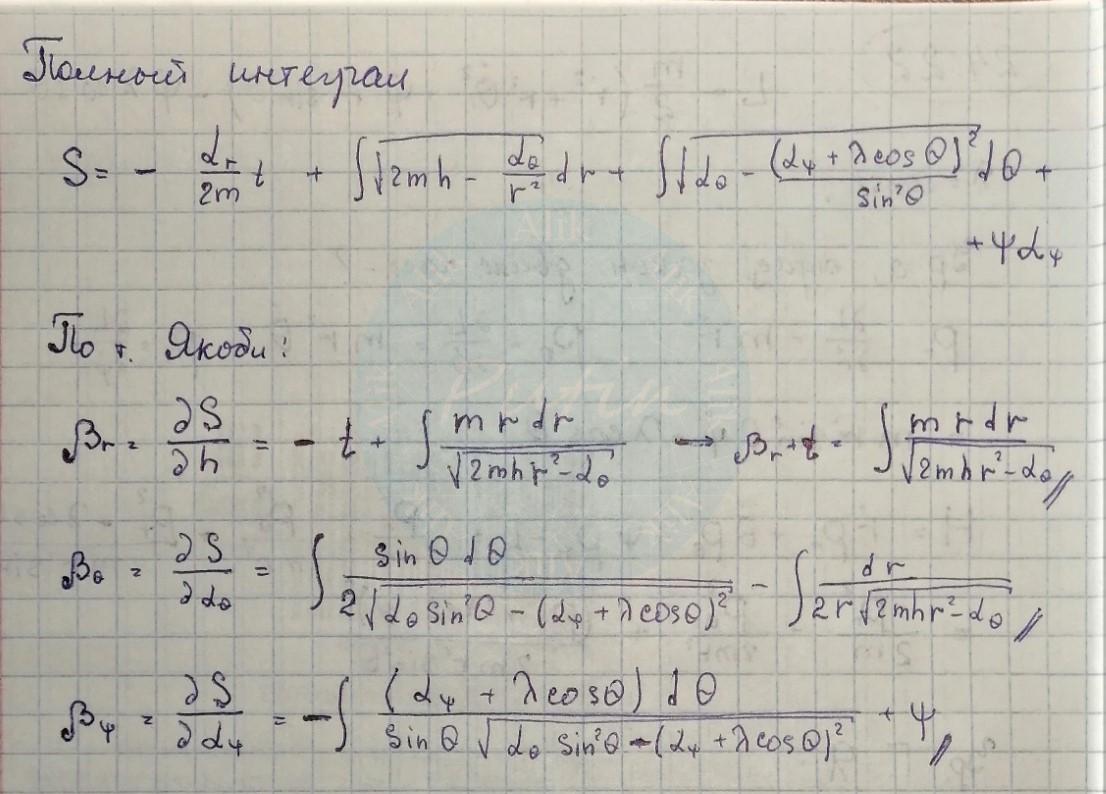 Полный интеграл
S = - α_r/2m t + ∫√(2mh - α_θ/r²) dr + ∫√(α_θ - (α_ψ + λcosθ)²/sin²θ) dθ +
+ ψα_ψ
По т. Якоби:
β_r = ∂S/∂h = - t + ∫ m r dr/√(2mhr² - α_θ) → β_r + t = ∫ m r dr/√(2mhr² - α_θ) //
β_θ = ∂S/∂α_θ = ∫ sinθ dθ/2√(α_θ sin²θ - (α_ψ + λcosθ)²) - ∫ dr/2r√(2mhr² - α_θ) //
β_ψ = ∂S/∂α_ψ = -∫ (α_ψ + λcosθ) dθ/sinθ √(α_θ sin²θ - (α_ψ + λcosθ)²) + ψ //
Alik